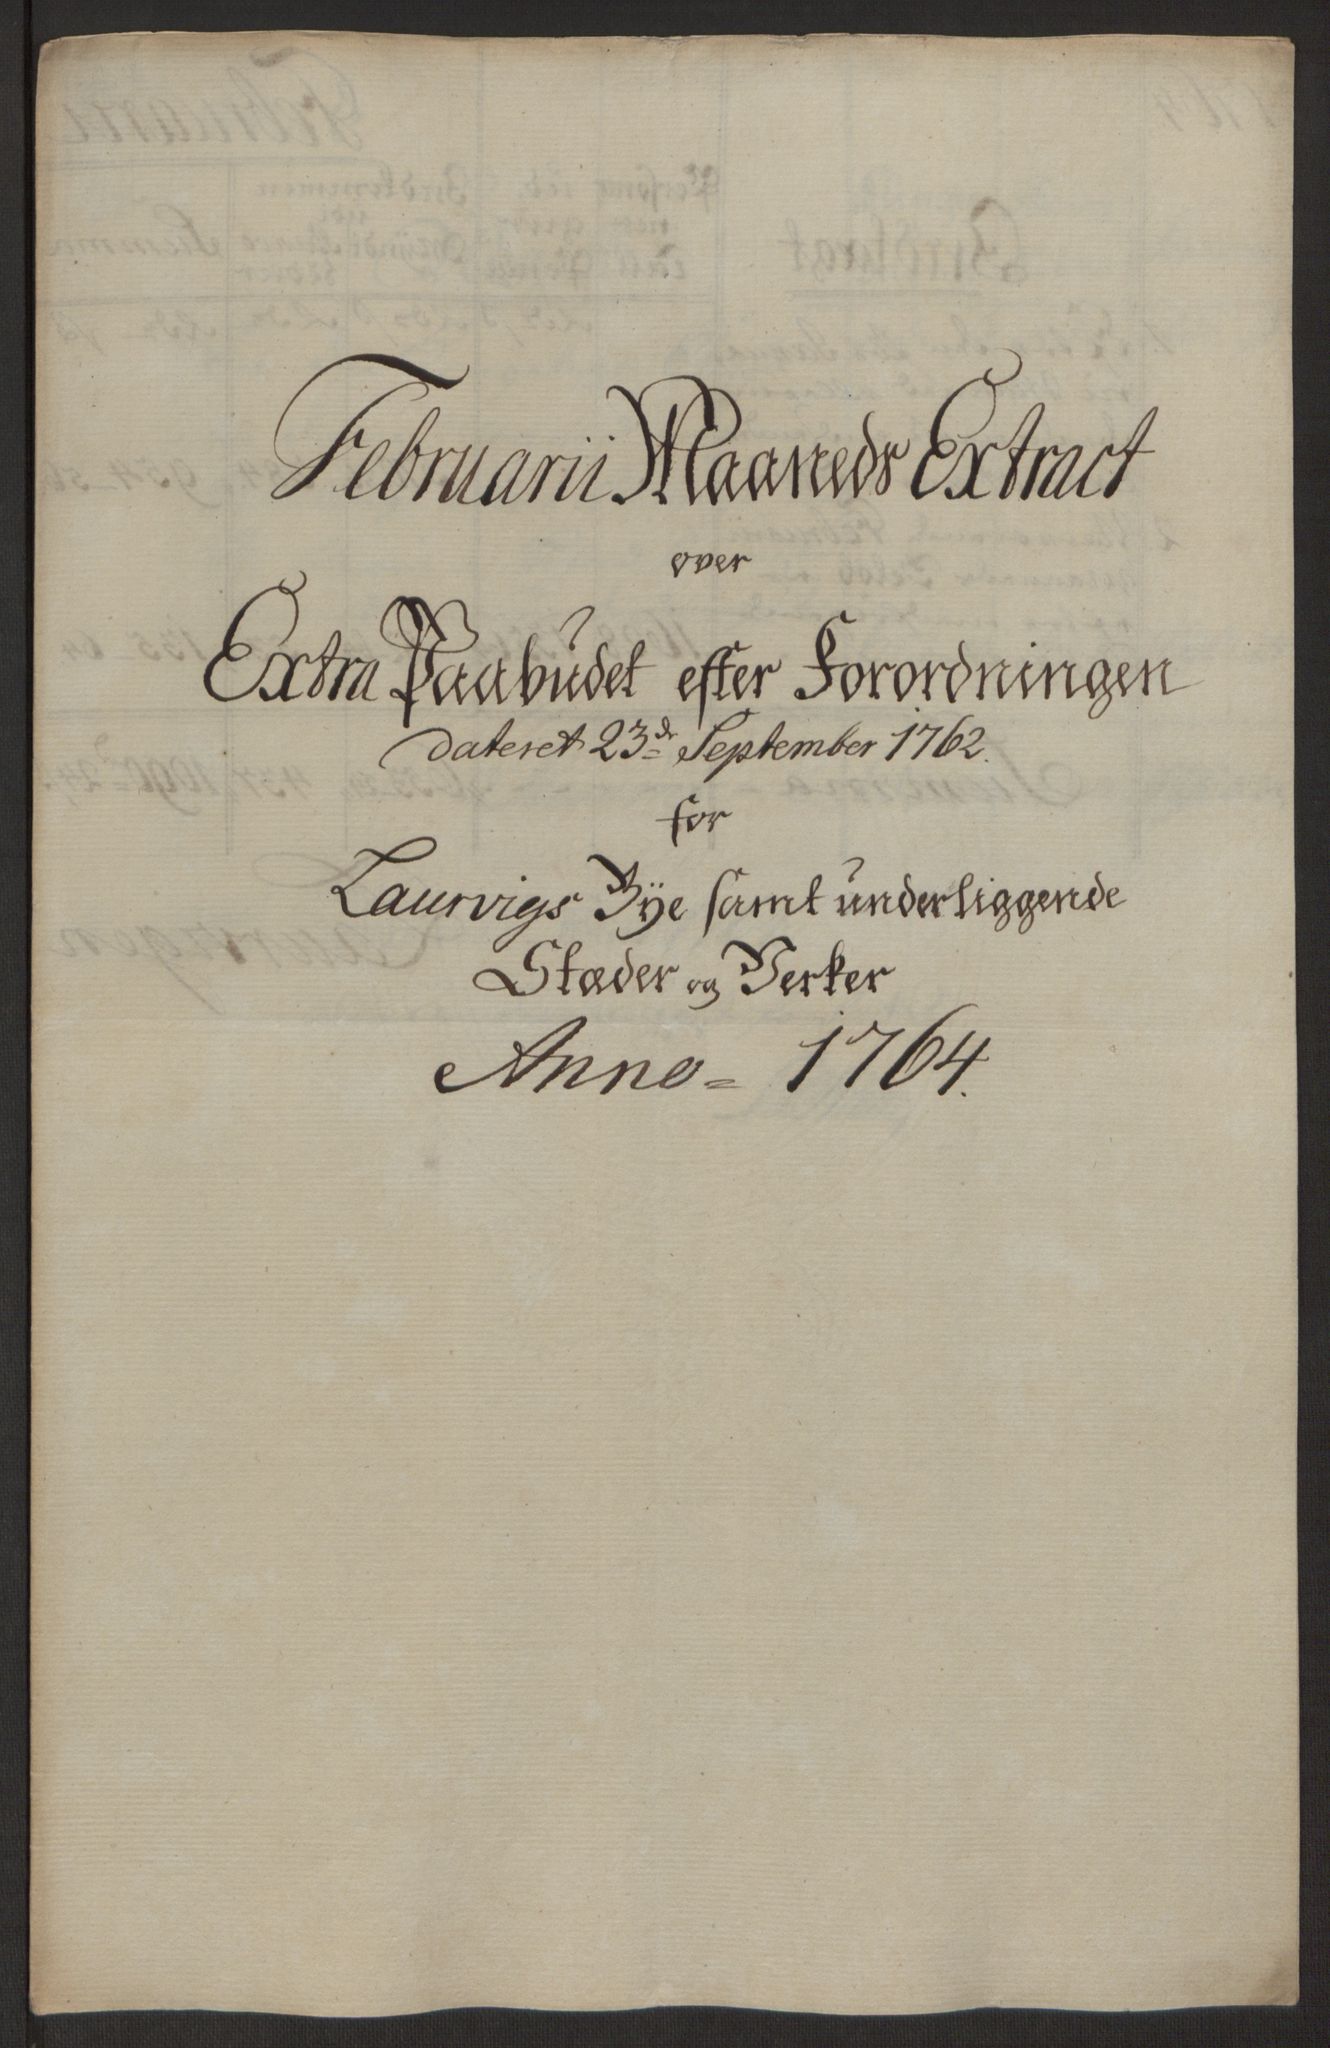 Februarii Maaneds Extract
over
Extra Paabudet efter Forordningen
dateret 23de September 1762.
for
Laurvigs Bÿe samt underliggende
Stæder og Verker
Anno = 1764.